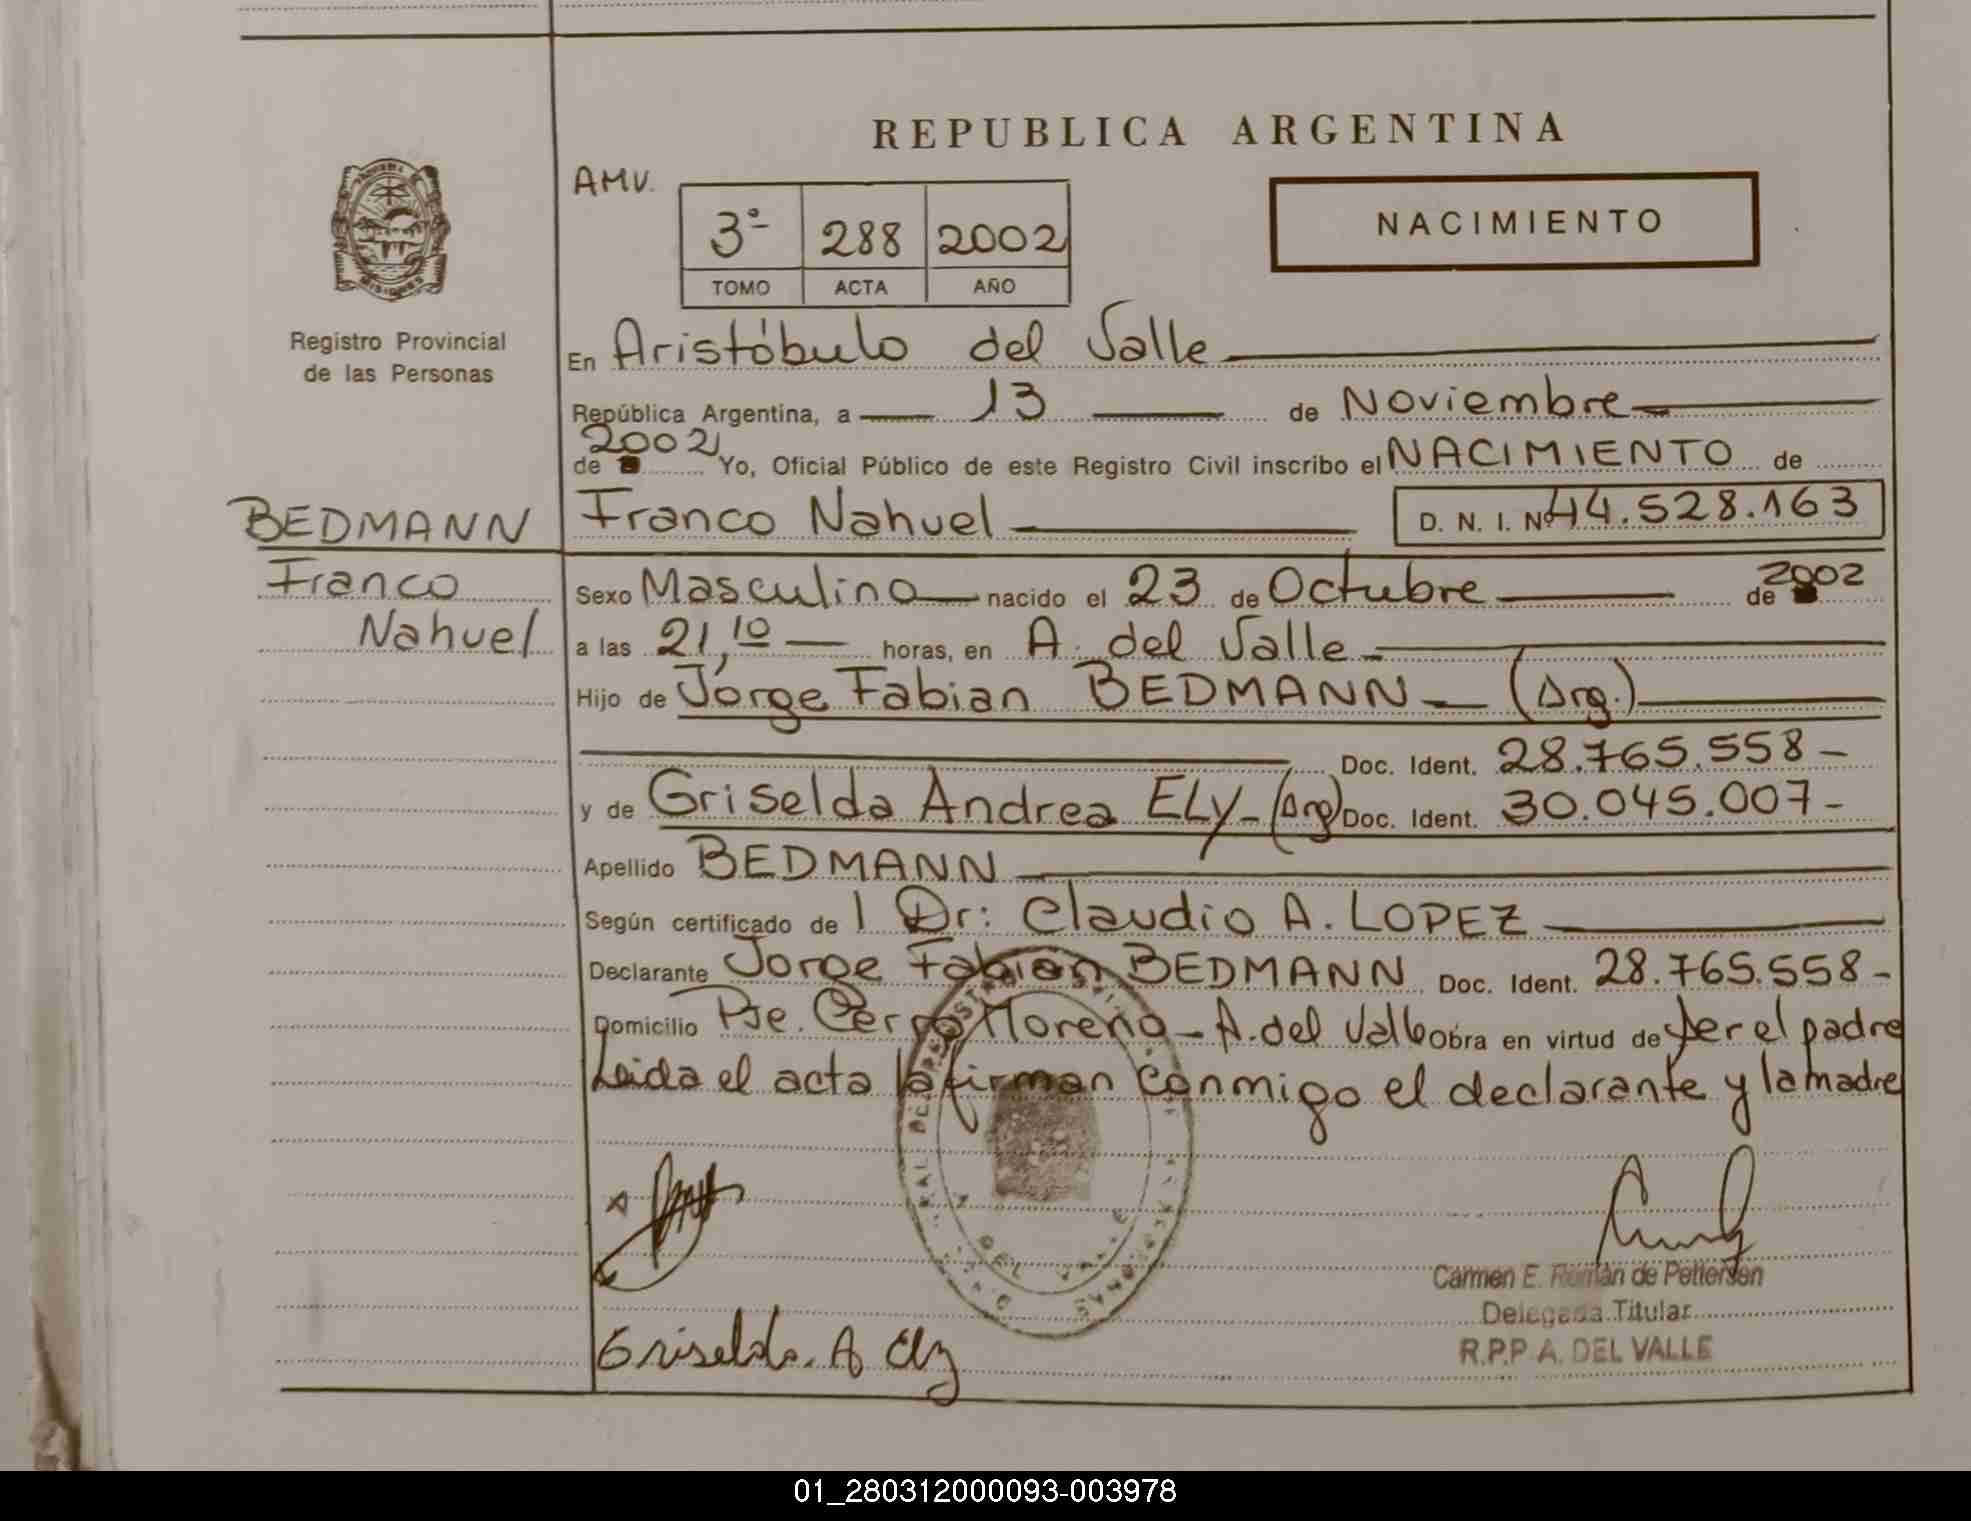 REPUBLICA ARGENTINA
AMV.
3º 288 2002
TOMO ACTA AÑO
NACIMIENTO
MISIONES
Registro Provincial
de las Personas
En Aristóbulo del Valle
República Argentina, a 13 de Noviembre
de 2002 Yo, Oficial Público de este Registro Civil inscribo el NACIMIENTO de
BEDMANN
Franco
Nahuel
Franco Nahuel D. N. I. Nº 44.528.163
Sexo Masculino nacido el 23 de Octubre de 2002
a las 21,10 horas, en A. del Valle
Hijo de Jorge Fabian BEDMANN (Arg.)
Doc. Ident. 28.765.558-
y de Griselda Andrea ELY-(Arg) Doc. Ident. 30.045.007-
Apellido BEDMANN
Según certificado de l Dr: Claudio A. LOPEZ
Declarante Jorge Fabian BEDMANN Doc. Ident. 28.765.558-
Domicilio Pje. Cerro Moreno - A. del Valle Obra en virtud de ser el padre
Leida el acta la firman conmigo el declarante y la madre
Carmen E. Román de Pettersen
Delegada Titular
R.P.P A. DEL VALLE
Griselda. A Ely
01_280312000093-003978